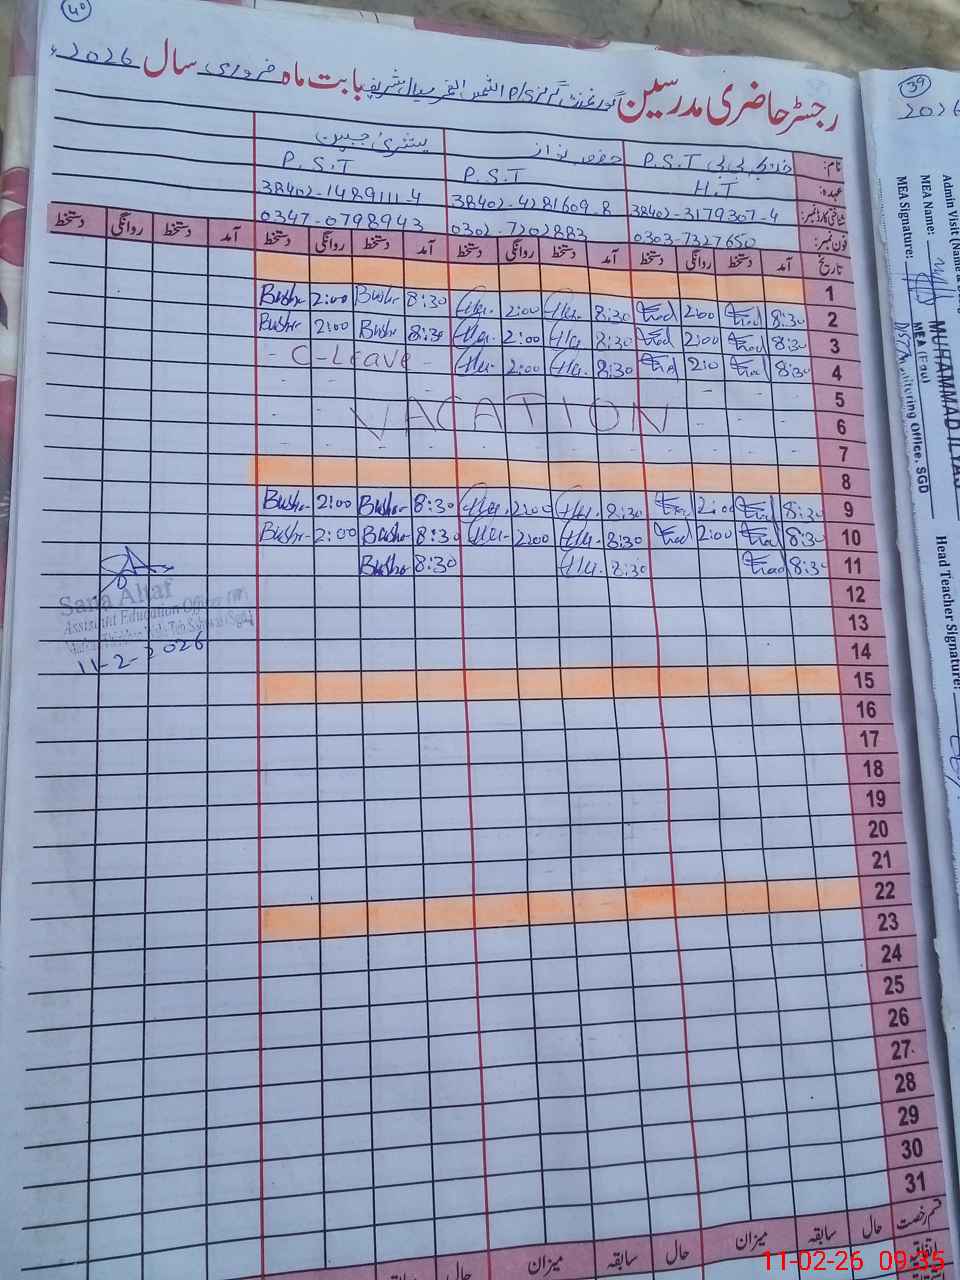 40
رجسٹر حاضری مدرسین گورنمنٹ گرلز P/S شمس الفخر سیال شریف بابت ماہ فروری سال 2026ء
نام: خدیجہ بی بی P.S.T حفصہ نواز بشریٰ جبین
عہدہ: H.T P.S.T P.S.T
شناختی کارڈ نمبر: 38402-3179307-4 38402-4181609-8 38402-1489111-4
فون نمبر: 0303-7327650 0302-7202883 0347-0798943
تاریخ آمد دستخط روانگی دستخط آمد دستخط روانگی دستخط آمد دستخط روانگی دستخط آمد دستخط روانگی دستخط
1
2 8:30 2:00 8:30 2:00 8:30 Bushr 2:00 Bushr
3 8:30 2:00 8:30 2:00 8:30 Bushr 2:00 Bushr
4 8:30 2:0 8:30 2:00 - C-Leave -
5
6 VACATION
7
8
9 8:30 2:00 8:30 2:00 8:30 Bushr 2:00 Bushr
10 8:30 2:00 8:30 2:00 8:30 Bushr 2:00 Bushr
11 8:30 8:30 8:30 Bushr
12
13
14
15
16
17
18
19
20
21
22
23
24
25
26
27
28
29
30
31
Sana Altaf
Assistant Education Officer (W)
11-2-2026
قسم رخصت حال سابقہ میزان حال سابقہ میزان حال سابقہ
اتفاقیہ
39
2026
Admin Visit (Name &
MEA Name:
MEA Signature:
MUHAMMAD ILYAS
MEA (Edu)
Distt Monitoring Office, SGD
Head Teacher Signature:
11-02-26 09:35